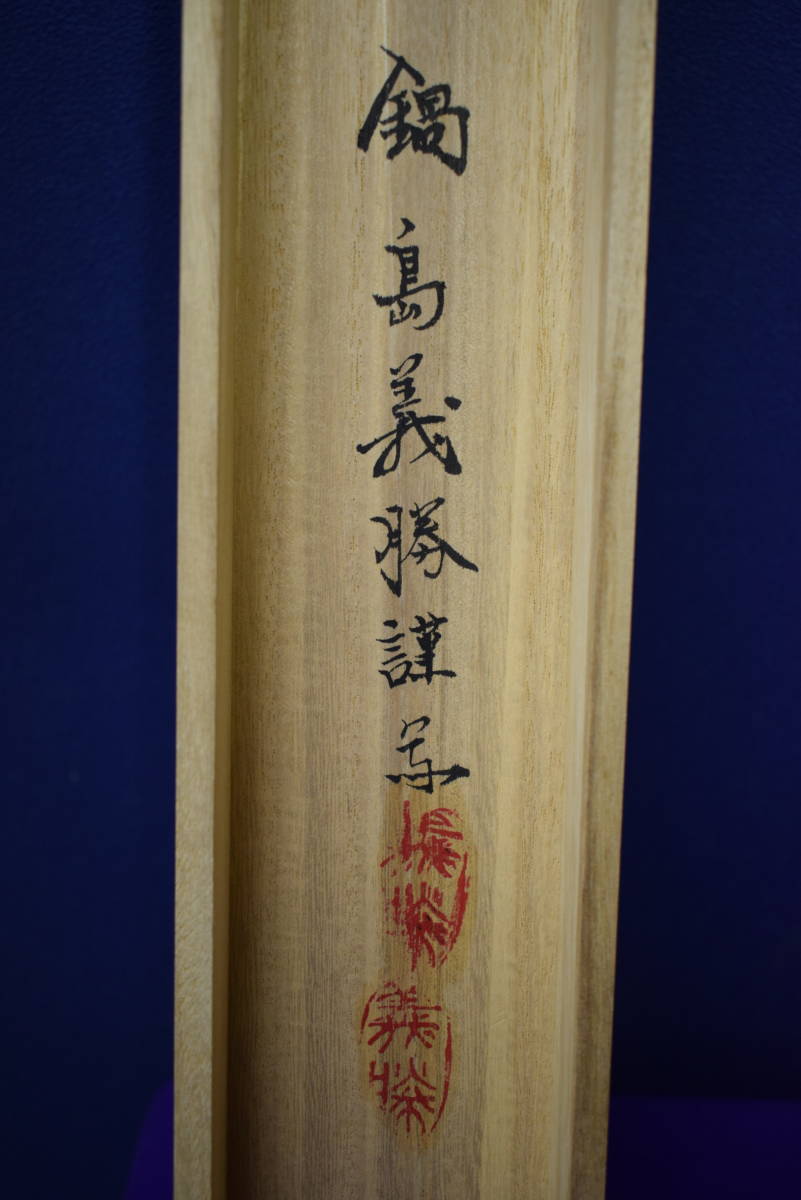 鍋島義勝謹写
義勝